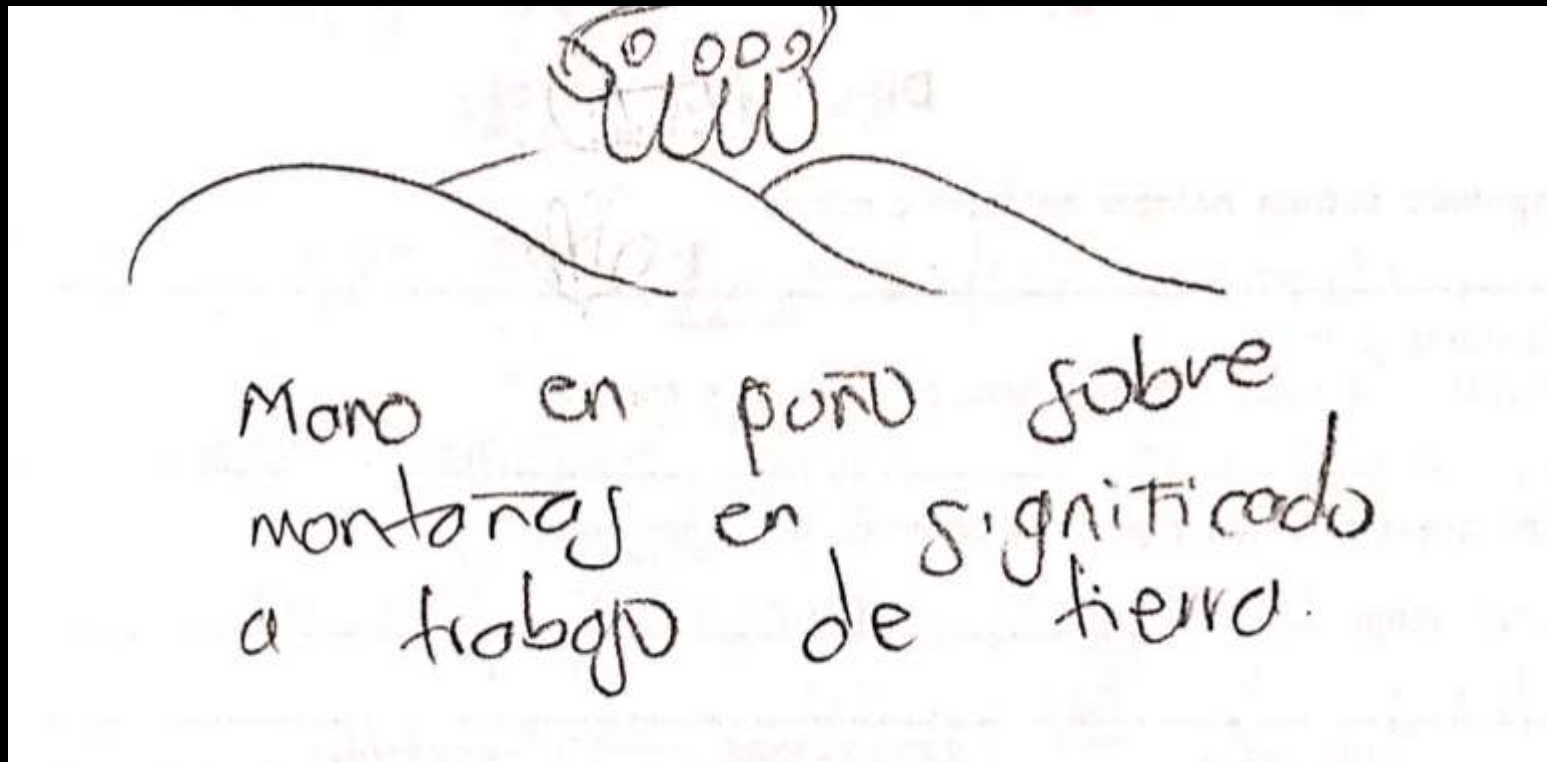 Mano en puño sobre
montañas en significado
a trabajo de tierra.